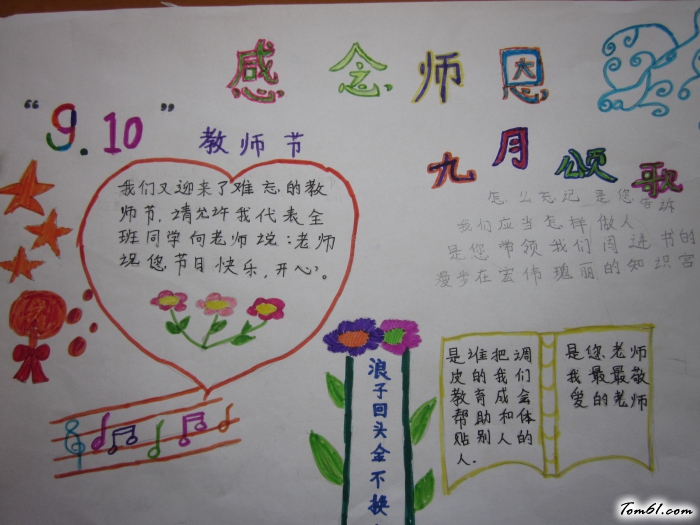 感念师恩
“9.10”
教师节
九月颂歌
我们又迎来了难忘的教
师节，请允许我代表全
班同学向老师说：老师
祝您节日快乐，开心。
怎么忘记 是您告诉
我们应当怎样做人
是您带领我们闯进书的
漫步在宏伟瑰丽的知识宫
浪子回头金不换
是谁把调
皮的我们
教育成会
帮助和体
贴别人的
人.
是您老师
我最最敬
爱的老师
Tom61.com